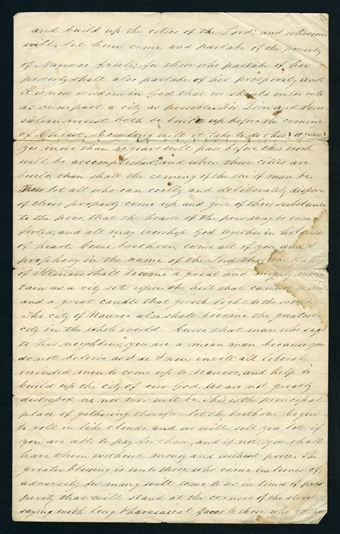 and build up the cities of the Lord; and whosoever
will, let him come and partake of the poverty
of Nauvoo freely; for those who partake of her
poverty shall also partake of her prosperity. And
it is now wisdom in God that we should enter into
as compact a city as possible, for Zion and Jeru
salem must both be built up before the coming of
Christ. How long will it take to do this? 10 years?
yes more than 40 years will pass before this work
will be accomplished; and when these cities are
built, then shall the coming of the son of man be.
Now let all who can coolly and deliberately dispose
of their property come up and give of their substance
to the poor that the hearts of the poor may be com
forted, and all may worship God together in holiness
of heart. Come brethren come all of you and I
prophecy in the name of the Lord that the State
of Illinois shall become a great and mighty moun
tain as a city set upon the hill that cannot be
and a great candle that giveth light to the
The city of Nauvoo also shall become the greatest
city in the whole world. Curse that man who says
to his neighbour, you are a mean man because you
do not believe as I do. I now invite all liberal
minded men to come up to Nauvoo, and help to
build up the city of our God. We are not greatly
distressed, no nor ever will be. This is the principal
place of gathering therefore let the brethren begin
to roll in like clouds, and we will sell you lots if
you are able to pay for them, and if not, you shall
have them without money and without price. The
greater blessing is unto those who come in times of
adversity. for many will come to us in times of pros
perity that will stand at the corners of the streets
saying with long pharasaical faces to those who come